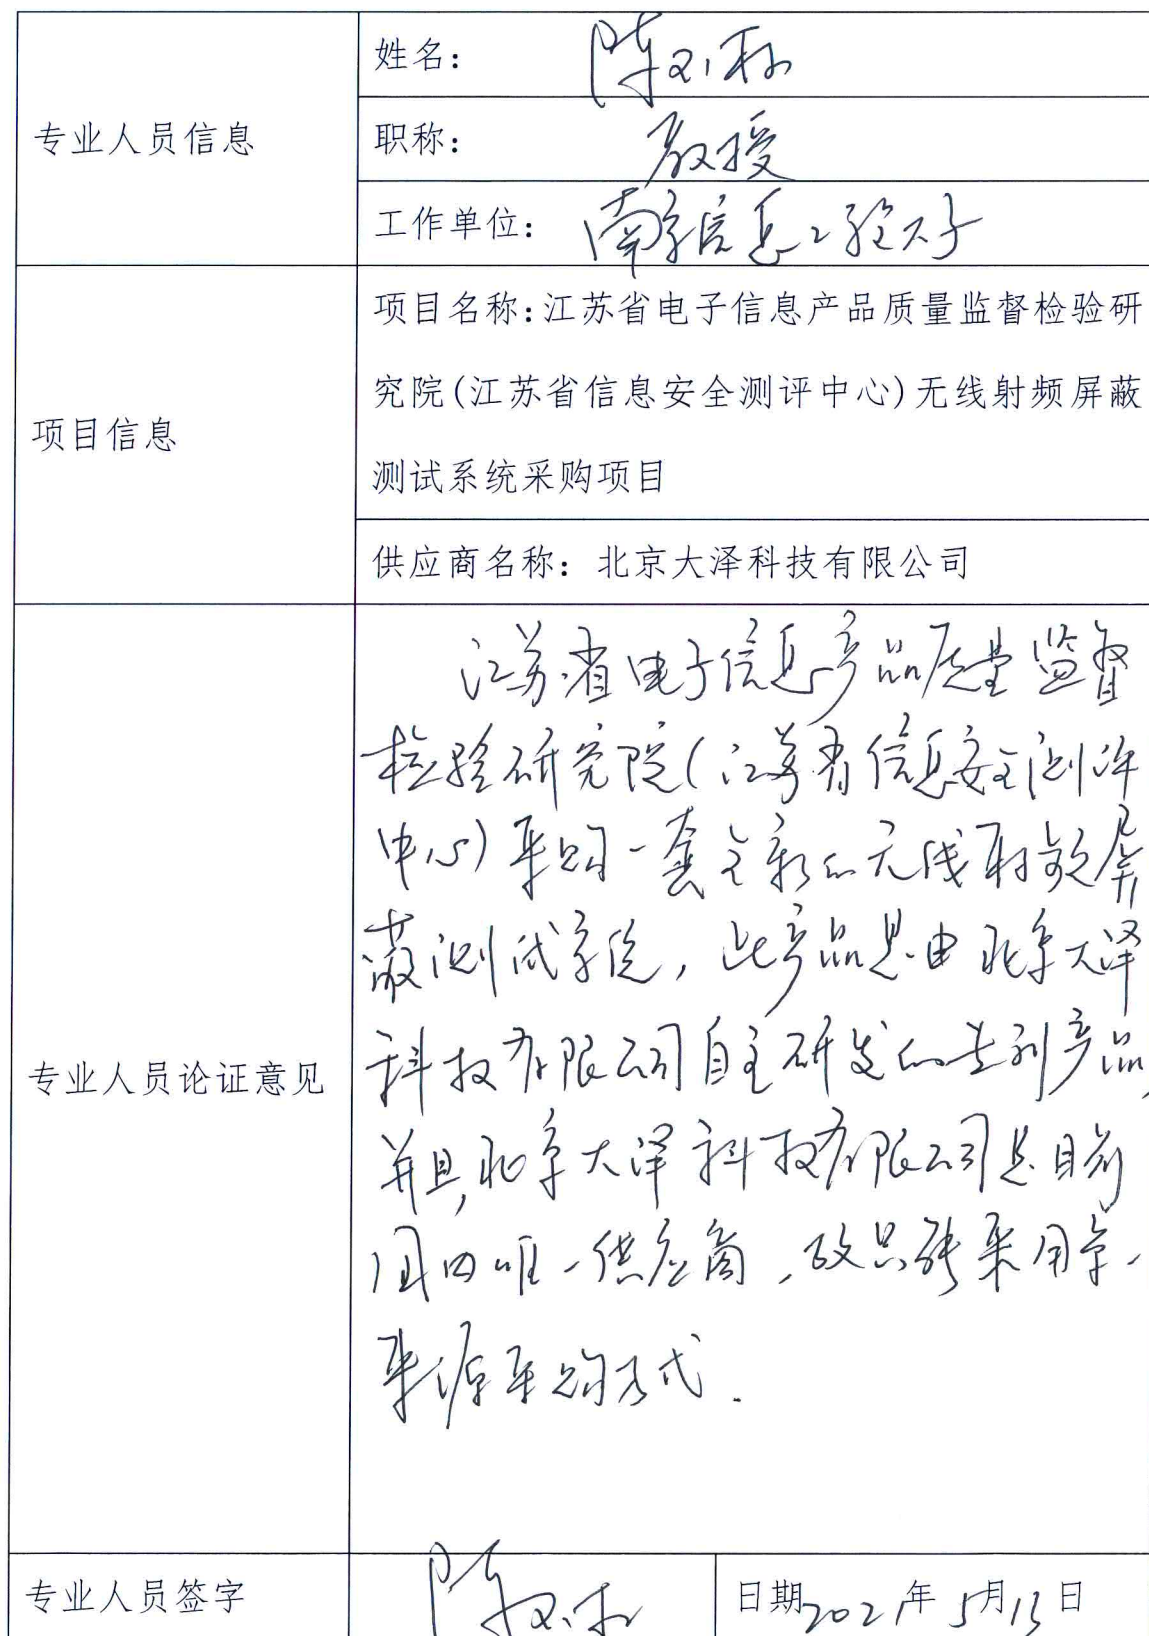 专业人员信息
姓名：陈
职称：教授
工作单位：南京信息工程大学
项目信息
项目名称：江苏省电子信息产品质量监督检验研
究院(江苏省信息安全测评中心)无线射频屏蔽
测试系统采购项目
供应商名称：北京大泽科技有限公司
专业人员论证意见
江苏省电子信息产品质量监督
检验研究院(江苏省信息安全测评
中心)采购一套全新的无线射频屏
蔽测试系统，此产品是由北京大泽
科技有限公司自主研发的专利产品，
并且，北京大泽科技有限公司是目前
国内唯一供应商，故只能采用单一
来源采购方式.
专业人员签字
陈
日期2021年5月13日